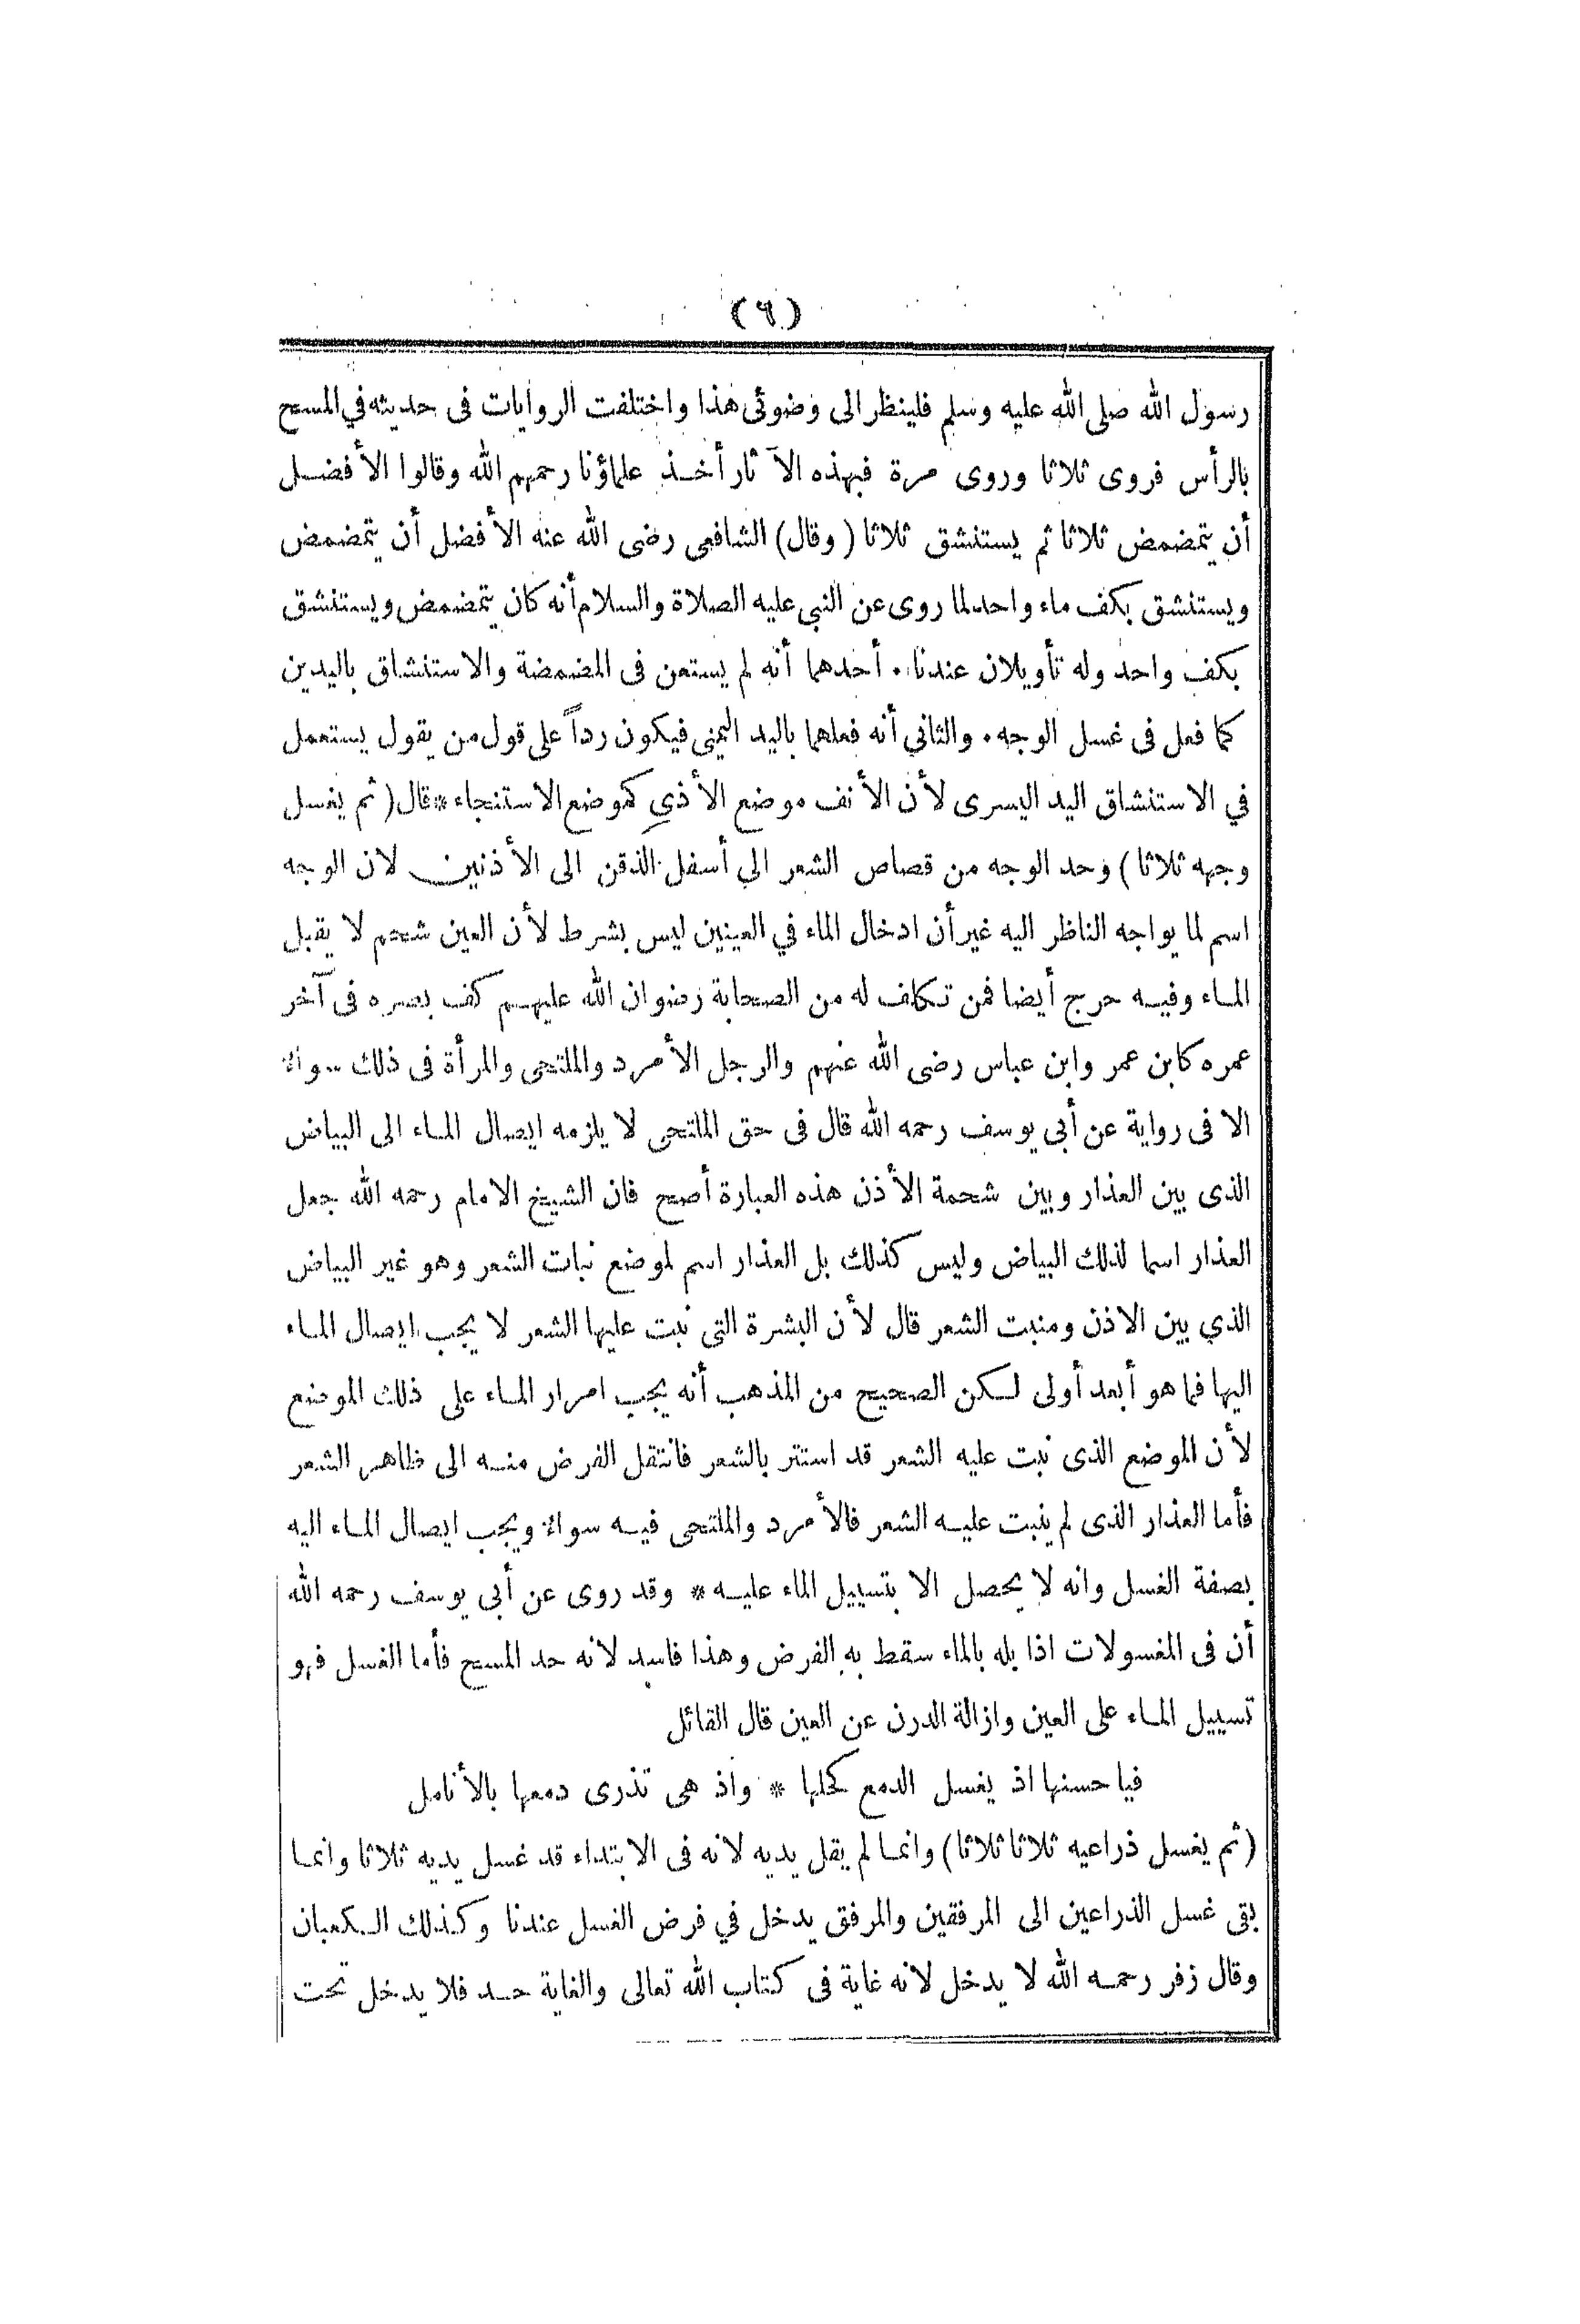 (٦)
رسول الله صلى الله عليه وسلم فلينظر الى وضوئى هذا واختلفت الروايات فى حديثه في المسح
بالرأس فروى ثلاثا وروى مرة فبهذه الآ ثار أخذ علماؤنا رحمهم الله وقالوا الأفضل
أن يتمضمض ثلاثا ثم يستنشق ثلاثا (وقال) الشافعى رضى الله عنه الأفضل أن يتمضمض
ويستنشق بكف ماء واحد لما روى عن النبى عليه الصلاة والسلام أنه كان يتمضمض ويستنشق
بكف واحد وله تأويلان عندنا. أحدهما أنه لم يستعن فى المضمضة والاستنشاق باليدين
كما فعل فى غسل الوجه. والثاني أنه فعلهما باليد اليمنى فيكون رداً على قول من يقول يستعمل
في الاستنشاق اليد اليسرى لأن الأنف موضع الأذي كموضع الاستنجاء * قال (ثم يغسل
وجهه ثلاثا) وحد الوجه من قصاص الشعر الي أسفل الذقن الى الأذنين لان الوجه
اسم لما يواجه الناظر اليه غير أن ادخال الماء في العينين ليس بشرط لأن العين شحم لا يقبل
الماء وفيه حرج أيضا فمن تكلف له من الصحابة رضوان الله عليهم كف بصره فى آخر
عمره كابن عمر وابن عباس رضى الله عنهم والرجل الأمرد والملتحى والمرأة فى ذلك سواء
الا فى رواية عن أبى يوسف رحمه الله قال فى حق الملتحى لا يلزمه ايصال الماء الى البياض
الذى بين العذار وبين شحمة الأذن هذه العبارة أصح فان الشيخ الامام رحمه الله جعل
العذار اسما لذلك البياض وليس كذلك بل العذار اسم لموضع نبات الشعر وهو غير البياض
الذي بين الاذن ومنبت الشعر قال لأن البشرة التى نبت عليها الشعر لا يجب ايصال الماء
اليها فما هو أبعد أولى لكن الصحيح من المذهب أنه يجب امرار الماء على ذلك الموضع
لأن الموضع الذى نبت عليه الشعر قد استتر بالشعر فانتقل الفرض منه الى ظاهر الشعر
فأما العذار الذى لم ينبت عليه الشعر فالأمرد والملتحى فيه سواء ويجب ايصال الماء اليه
بصفة الغسل وانه لا يحصل الا بتسييل الماء عليه * وقد روى عن أبى يوسف رحمه الله
أن فى المغسولات اذا بله بالماء سقط به الفرض وهذا فاسد لانه حد المسح فأما الغسل فهو
تسييل الماء على العين وازالة الدرن عن العين قال القائل
فيا حسنها اذ يغسل الدمع كحلها * واذ هى تذرى دمعها بالأنامل
(ثم يغسل ذراعيه ثلاثا ثلاثا) وانما لم يقل يديه لانه فى الابتداء قد غسل يديه ثلاثا وانما
بقى غسل الذراعين الى المرفقين والمرفق يدخل في فرض الغسل عندنا وكذلك الكعبان
وقال زفر رحمه الله لا يدخل لانه غاية فى كتاب الله تعالى والغاية حد فلا يدخل تحت